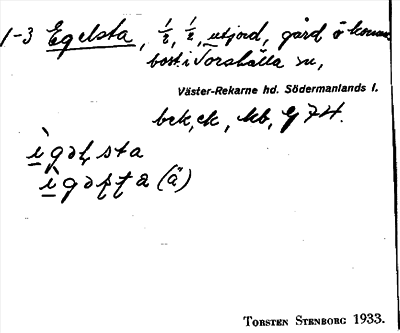 1-3 Egelsta, 1/2, 1/2, utjord, gård o konun
bost. i Torshälla sn,
Väster-Rekarne hd. Södermanlands l.
bek, ek, kb, G 74.
ìgəḷsta
ìgəṣṭa (ä)
TORSTEN STENBORG 1933.